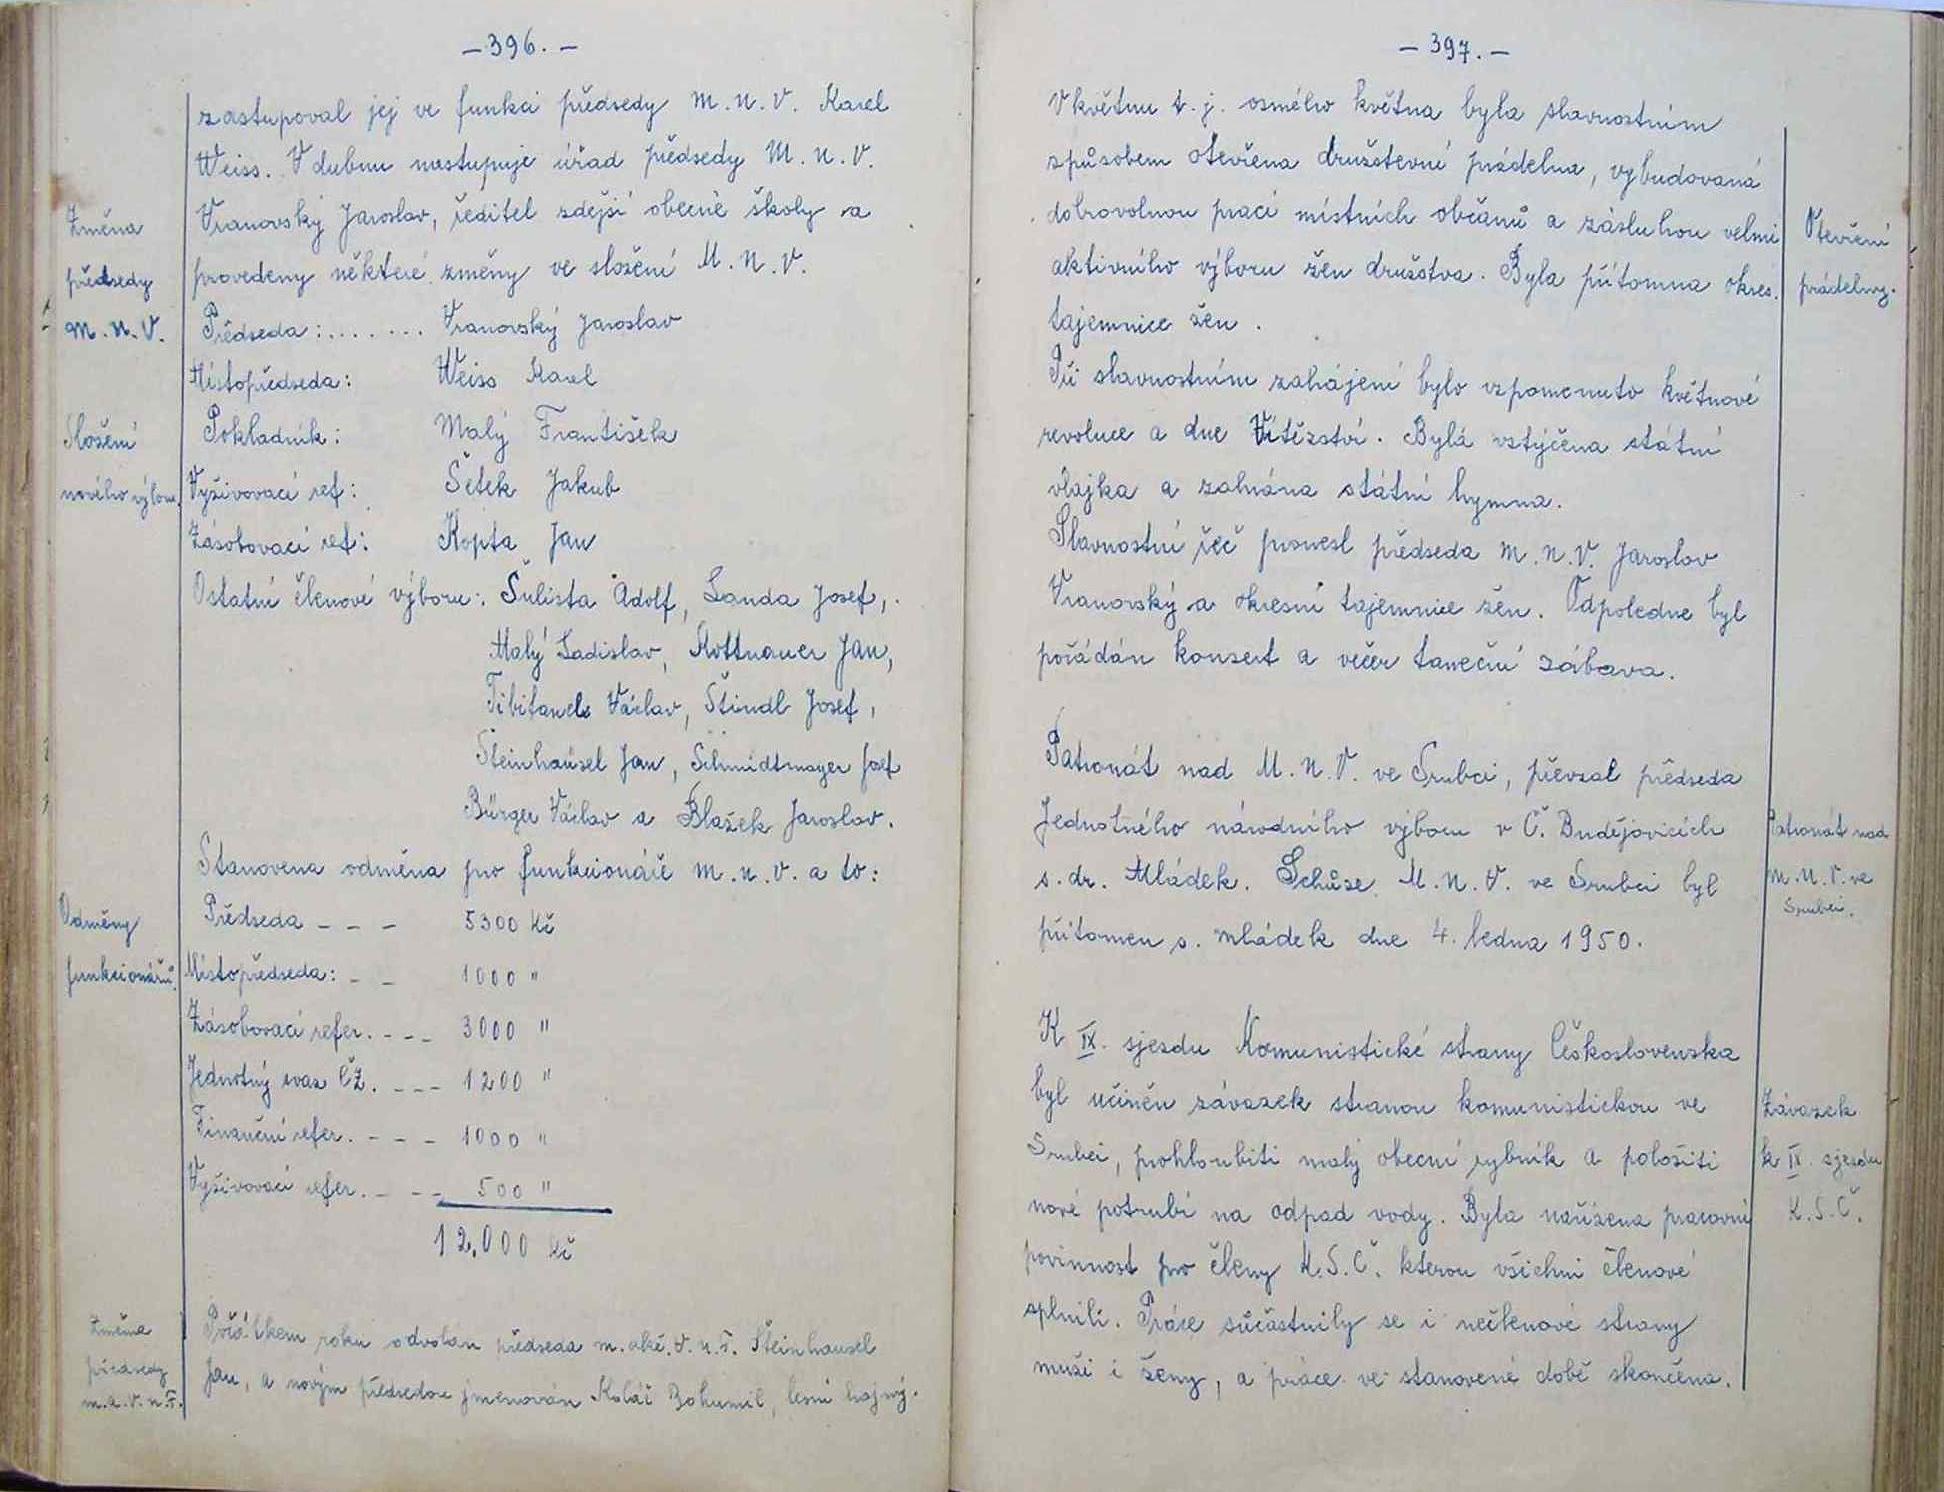 – 396. –
zastupoval jej ve funkci předsedy M.N.V. Karel
Weiss. V dubnu nastupuje úřad předsedy M.N.V.
Vranovský Jaroslav, ředitel zdejší obecné školy a
provedeny některé změny ve složení M.N.V.
Změna
předsedy
M.N.V.
Předseda:....... Vranovský Jaroslav
Místopředseda: Weiss Karel
Pokladník: Malý František
Vyživovací ref: Šetek Jakub
Zásobovací ref: Kopta Jan
Složení
nového výboru.
Ostatní členové výboru: Šulista Adolf, Landa Josef,
Malý Ladislav, Kottnauer Jan,
Tibitancl Václav, Štindl Josef,
Steinhäusel Jan, Schmidtmayer Josef
Bürger Václav a Blažek Jaroslav.
Stanovena odměna pro funkcionáře M.N.V. a to:
Odměny
funkcionářů.
Předseda – – – 5300 Kč
Místopředseda: – – 1000 "
Zásobovací refer. – – – 3000 "
Jednotný svaz ČZ. – – – 1200 "
Finanční refer. – – – 1000 "
Vyživovací refer. – – – 500 "
12.000 Kč
Změna
předsedy
m.a.V.n.F.
Počátkem roku odvolán předseda m.akč.V.n.F. Šteinhausel
Jan, a novým předsedou jmenován Kolář Bohumil, lesní hajný.
– 397. –
V květnu t.j. osmého května byla slavnostním
způsobem otevřena družstevní prádelna, vybudovaná
dobrovolnou prací místních občanů a zásluhou velmi
aktivního výboru žen družstva. Byla přítomna okres.
tajemnice žen.
Otevření
prádelny.
Při slavnostním zahájení bylo vzpomenuto květnové
revoluce a dne Vítězství. Bylá vztýčena státní
vlajka a zahrána státní hymna.
Slavnostní řeč pronesl předseda M.N.V. Jaroslav
Vranovský a okresní tajemnice žen. Odpoledne byl
pořádán konsert a večer taneční zábava.
Patronát nad M.N.V. ve Srubci, převzal předseda
Jednotného národního výboru v Č. Budějovicích
s. dr. Mládek. Schůze M.N.V. ve Srubci byl
přítomen s. mládek dne 4. ledna 1950.
Patronát nad
M.N.V. ve
Srubci.
K IX. sjezdu Komunistické strany Československa
byl učiněn závazek stranou komunistickou ve
Srubci, prohloubiti malý obecní rybník a položiti
nové potrubí na odpad vody. Byla nařízena pracovní
povinnost pro členy K.S.Č. kterou všichni členové
splnili. Práce súčastnily se i nečlenové strany
muži i ženy, a práce ve stanovené době skončena.
Závazek
k IX. sjezdu
K.S.Č.